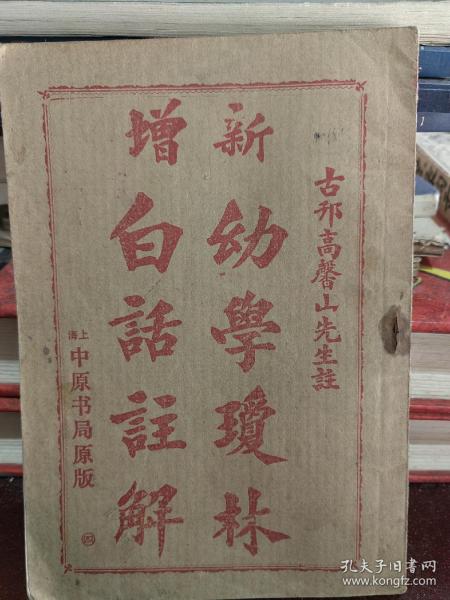 古邗高馨山先生註
新增
幼學瓊林
白話註解
上海中原书局原版
四
孔夫子旧书网
www.kongfz.com